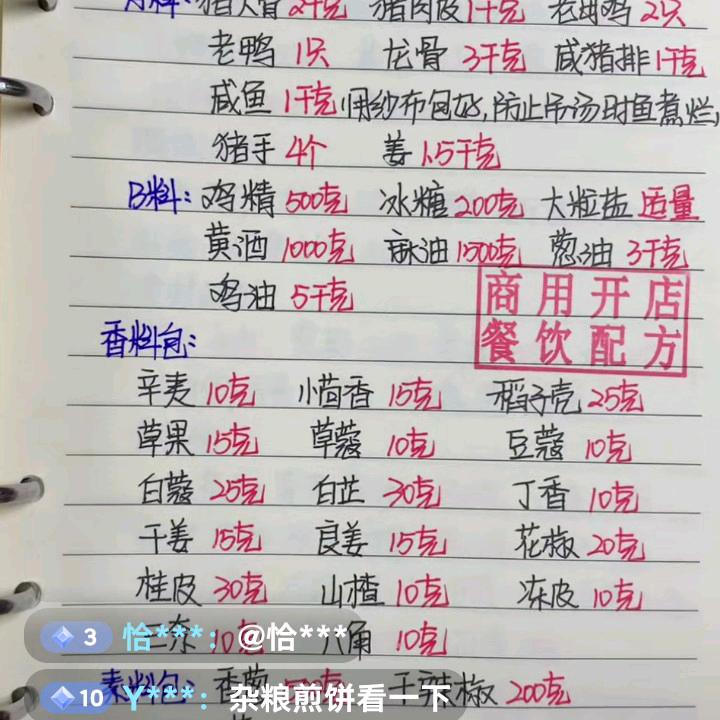 料：猪大骨2千克 猪肉皮1千克 老母鸡2只
老鸭1只 龙骨3千克 咸猪排1千克
咸鱼1千克用纱布包好,防止吊汤时鱼煮烂,
猪手4个 姜1.5千克
B料：鸡精500克 冰糖200克 大粒盐适量
黄酒1000克 麻油1500克 葱油3千克
鸡油5千克
商用开店
餐饮配方
香料包：
辛夷10克 小茴香15克 稻子壳25克
草果15克 草蔻10克 豆蔻10克
白蔻25克 白芷30克 丁香10克
干姜15克 良姜15克 花椒20克
桂皮30克 山楂10克 冻皮10克
三奈10克 八角10克
3 恰***：@恰***
素料包：香菊 干辣椒200克
10 Y***：杂粮煎饼看一下